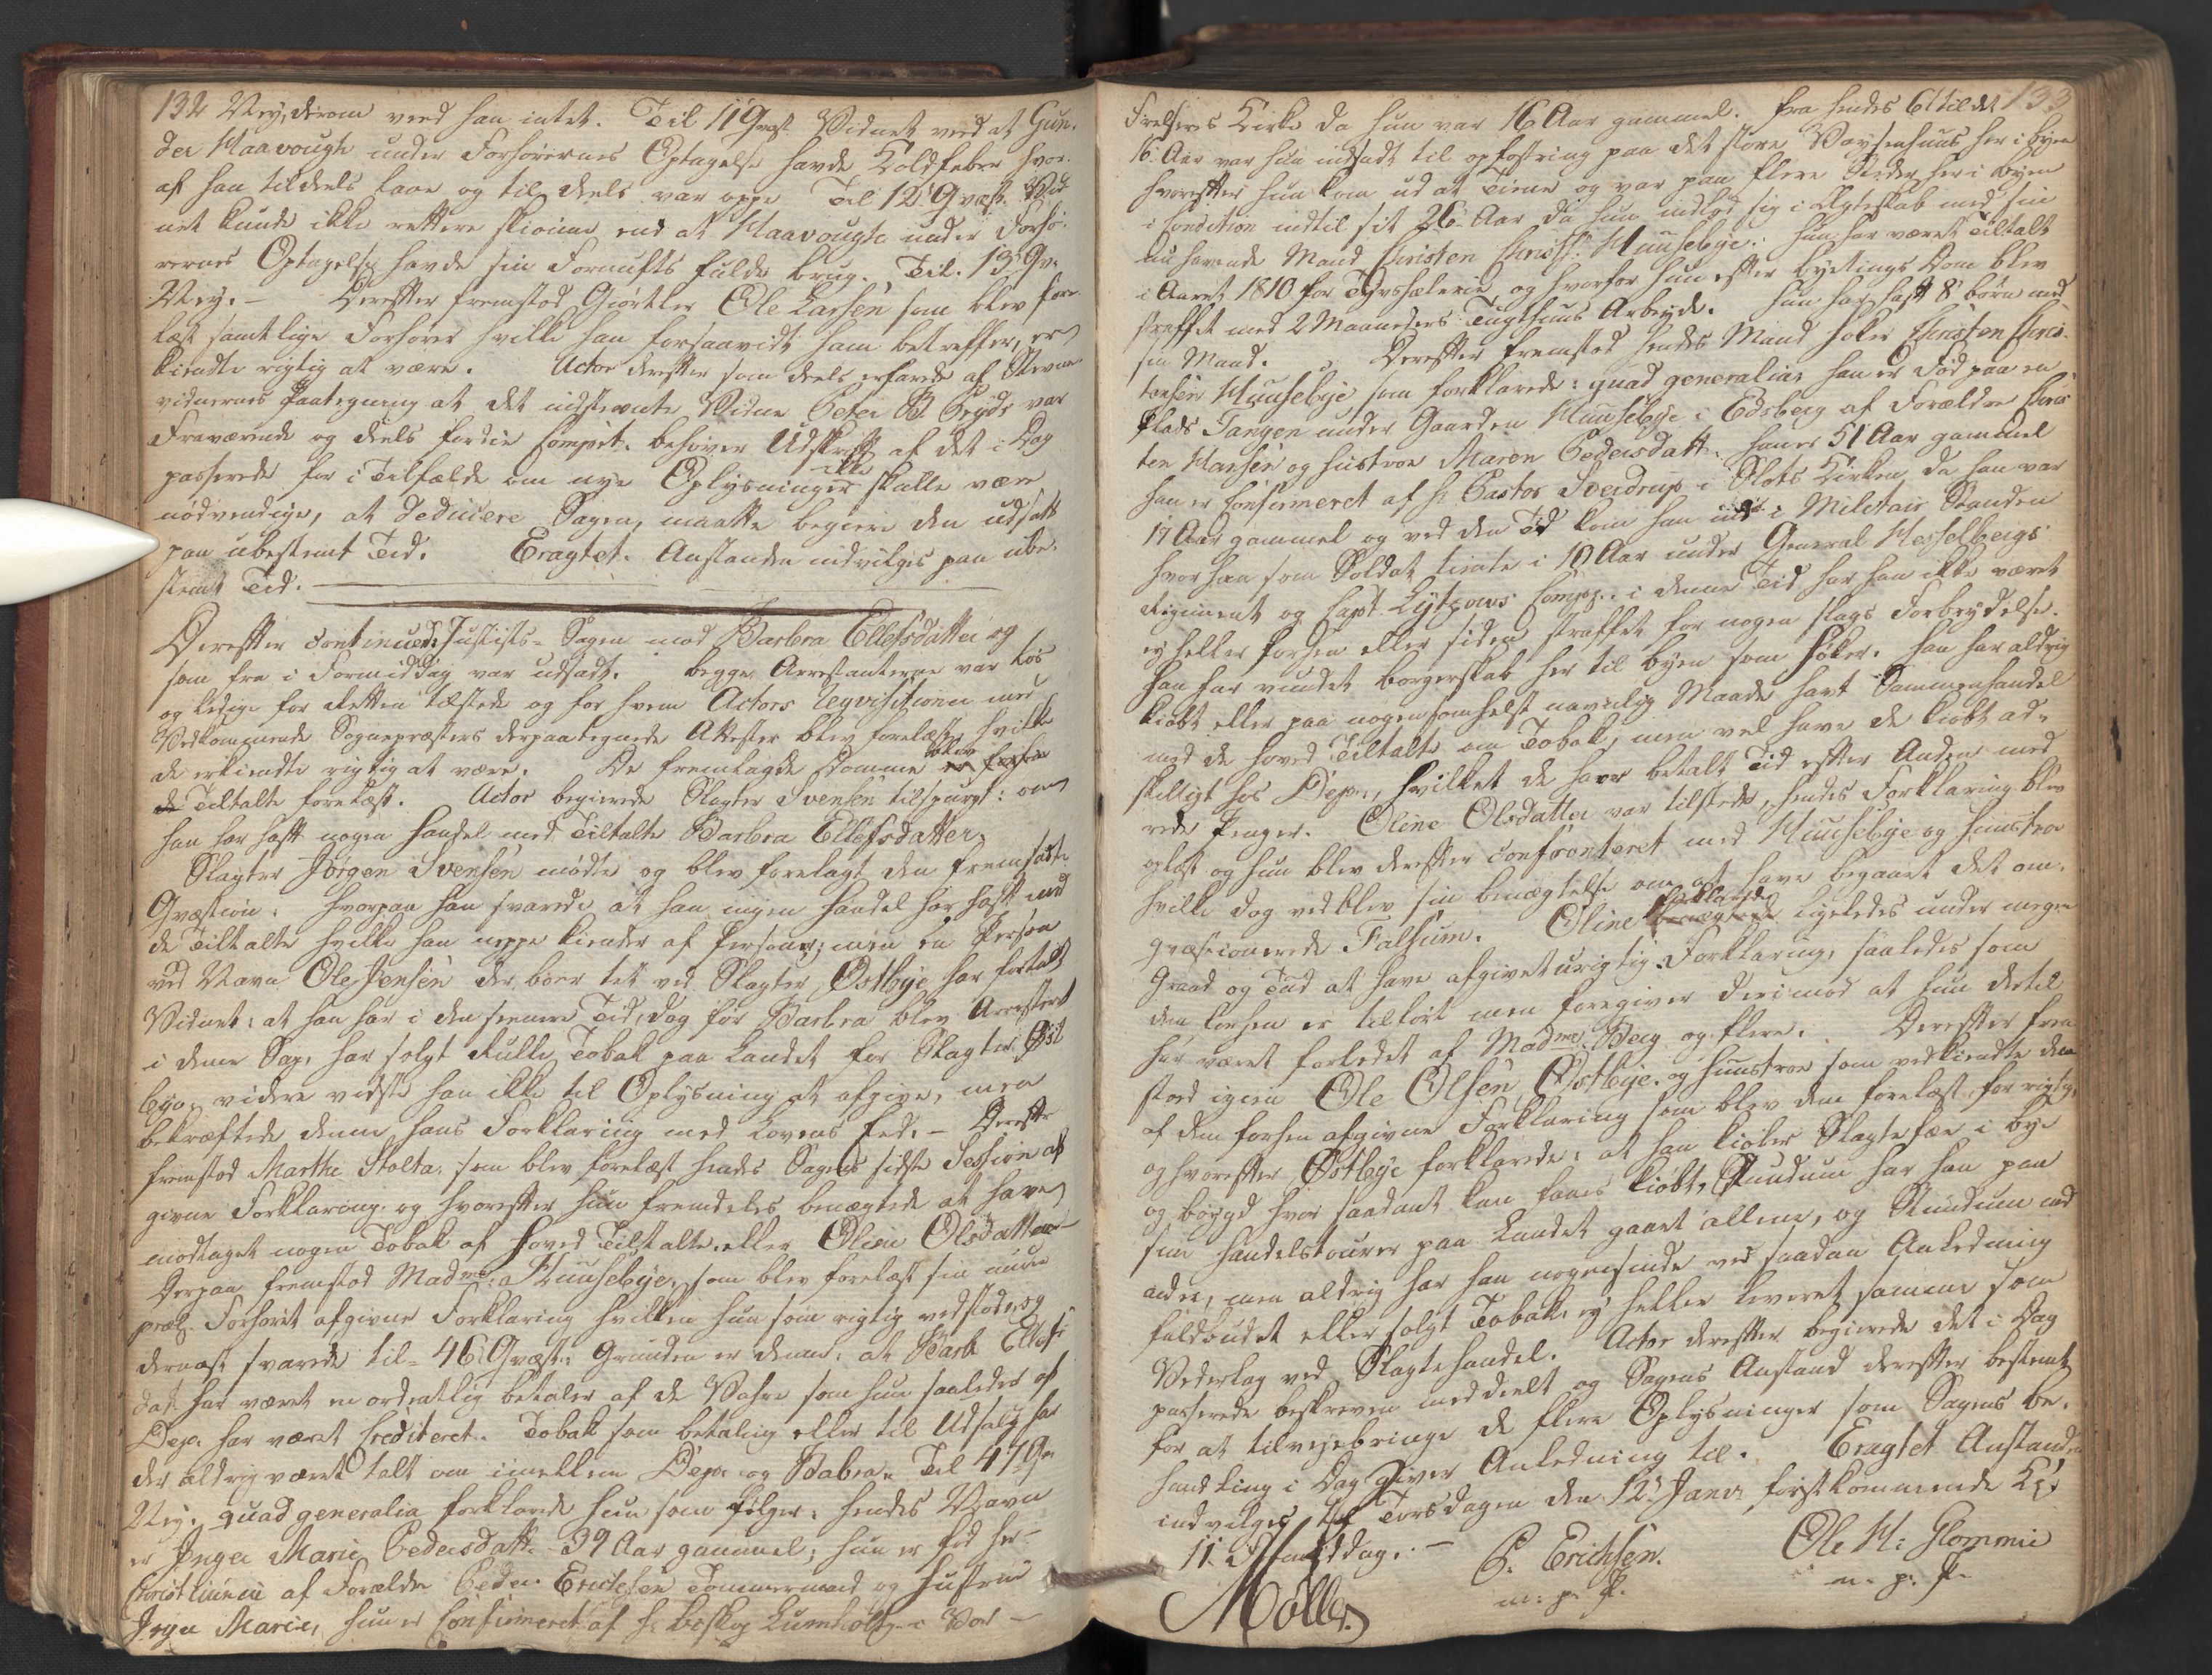 132
Nej, derom veed han intet. Til 11 Qvæst. Vidnet veed at Gun-
der Haavougte under Forhørernes Optagelse havde Koldfeber hvor-
af han tildeels laae og tildeels var oppe Til 12 Qvæst. Vid-
net kunde ikke rettere skiønne, end at Haavougte under Forhø-
rernes Optagelse havde sin Fornufts fulde brug. Til 13 Qv:
Nej. - Derefter fremstod Giørtler Ole Larsen som blev fore-
læst samtlige Forhører hvilke han forsaavidt ham betreffer, er-
kiendte rigtig at være. Actor derefter som deels erfarede af Stevne
vidnernes Paategning at det indstevnte Vidne Peter B. var
Fraværende og deels fordie Comparit. behøver Udskrift af det i Dag
passerede for i Tilfælde om nye Oplysninger ikke skulle være
nødvendige, at deducere Sagen, maatte begiere den udsatt
paa ubestemt Tid. Eragtet. Anstanden indvilges paa ube-
stemt Tid.
Derefter continuerede Justits-Sagen mod Barbra Ellefsdatter og
som fra i Formiddag var udsadt. begge Arrestanterne var løs
og ledige for Retten tilstede og for hvem Actors Reqvisitioner med
Vedkommende Sognepræsters derpaategnede Attester blev forelæst, hvilke
de erkiendte rigtig at være. De fremlagde Domme blev
de Tiltalte forelæst. Actor begierede Slagter Svensen tilspurgt: om
han har haft nogen Handel med Tiltalte Barbra Ellefsdatter,
Slagter Jørgen Svensen mødte og blev forelagt den fremsatte
Qvæstion: hvorpaa han svarede at han ingen Handel har haft med
de Tiltalte hvilke han neppe kiender af Person; men en Person
ved Navn Ole Jensen der boer tet ved Slagter Østbye har fortalt
Vidnet: at han har i den senere Tid, dog før Barbra blev Arresteret
i denne Sag, har solgt Rulle Tobak paa Landet for Slagter Øst
bye, videre vidste han ikke til Oplysning at afgive, men
bekræftede denne hans Forklaring med Lovens Eed. - Derefter
fremstod Marthe Stolta, som blev forelæst hendes Sagens sidste Session af-
givne Forklaring, og hvorefter hun fremdeles benægtede at have
modtaget nogen Tobak af Hoved Tiltalte eller Oline Olsdatter -
Derpaa fremstod Madme: Huusebye, som blev forelæst sin under
præl: Forhørit afgivne Forklaring hvilken hun som rigtig vedstod, og
dernæst svarede til 46 Qvæst: Grunden er denne, at Barb Ellefs
dat. har været en ordentlig betaler af de Vahre som hun saaledes af
Dep. har været Crediteret. Tobak som betaling eller til Udsalg har
der aldrig været talt om imellem Dep. og Babra. Til 47 Qv
Nej. quad generalia forklarede hun som følger: hendes Navn
er Inger Marie Pedersdatt. 39 Aar gammel; hun er fød her
Christiania af Forældre Peder Erichsen Tømmermand og Hustrue
Inger Marie, hun er Confirmeret af H: biskop Lumholtz i Vor -
133
Frelseres Kirke da hun var 16 Aar gammel. Fra hendes 6te til det
16. Aar var hun indsadt til opfostring paa det store Waysenhuus her i byen
hvorefter hun kom ud at tiene og var paa flere Steder her i byen
i Condition indtil sit 26. Aar da hun indlod sig i Ægteskab med sin
nu havende Mand Christen Christ: Huusebye. Hun har været tiltalt
i Aaret 1810 for Tyvshælerie og hvorfor hun efter byetings Dom blev
straffet med 2 Maaneders Tugthuus Arbeyde. Hun har haft 8 børn med
sin Mand. Derefter fremstod hendes Mand Høker Christen Chris-
tensen Huusebye som forklarede: quad generalia, han er Fød paa en
Plads Tangen under Gaarden Huusebye i Edsberg af Forældre Chris
ten Hansen og Hustroe Maren Pedersdatt. han er 51 Aar gammel
han er Confirmeret af H: Pastor Sverdrup i Slots Kirken, da han var
17 Aar gammel og ved den Tid kom han ind i Militair Standen
hvor han som Soldat tiente i 10 Aar under General Hesselbergs
Regiment og Capt. Lytzows Compag. i denne Tid har han ikke været
ey heller forhen eller siden straffet for nogen slags Forbrydelse.
Han har vundet borgerskab her til byen som Høker. Han har aldrig
kiøbt eller paa nogensomhelst navnlig Maade havt Sammenhandel
med de hoved Tiltalte om Tobak, men vel have de kiøbt ad-
skilligt hos Dep., hvilket de have betalt Tid efter Anden med
rede Penger. Oline Olsdatter var tilstede, hendes Forklaring blev
oplæst og hun blev derefter confronteret med Huusebye og Huustroe
hvilke dog vedblev sin benægtelse om at have begaaet det om-
qvæstionerede Falsum. Oline forklarede ligeledes under megen
Graad og Eed at have afgivet urigtig Forklaring, saaledes som
den forhen er tilført men foregiver derimod at hun dertil
har været forledet af Madme. Berg og flere. Derefter frem
stod igien Ole Olsen Østbye og Huustroe som vedkiendte dem
af dem forhen afgivne Forklaring som blev dem forelæst for rigtig
og hvorefter Østbye forklarede: at han kiøber Slagtefæe i bye
og bøygd hvor saadant kan faaes kiøbt, Stundum har han paa
sine Handelstourer paa Landet gaaet allene, og Stundum med
andre, men aldrig har han nogensinde ved saadan Anledning
faldbudet eller solgt Tobak, ey heller leveret samme som
Vederlag ved Slagtehandel. Actor derefter begierede det i Dag
passerede beskreven meddeelt og Sagens Anstand derefter bestemt
for at tilvejebringe de flere Oplysninger som Sagens be-
handling i Dag giver Anledning til. Eragtet Anstanden
indvilges til Torsdagen den 12. Janv. førstkommende Kl.
11 Formiddag. -
Møller
P. Erichsen.
m: p: P.
Ole H: Glommie
m. p: P.